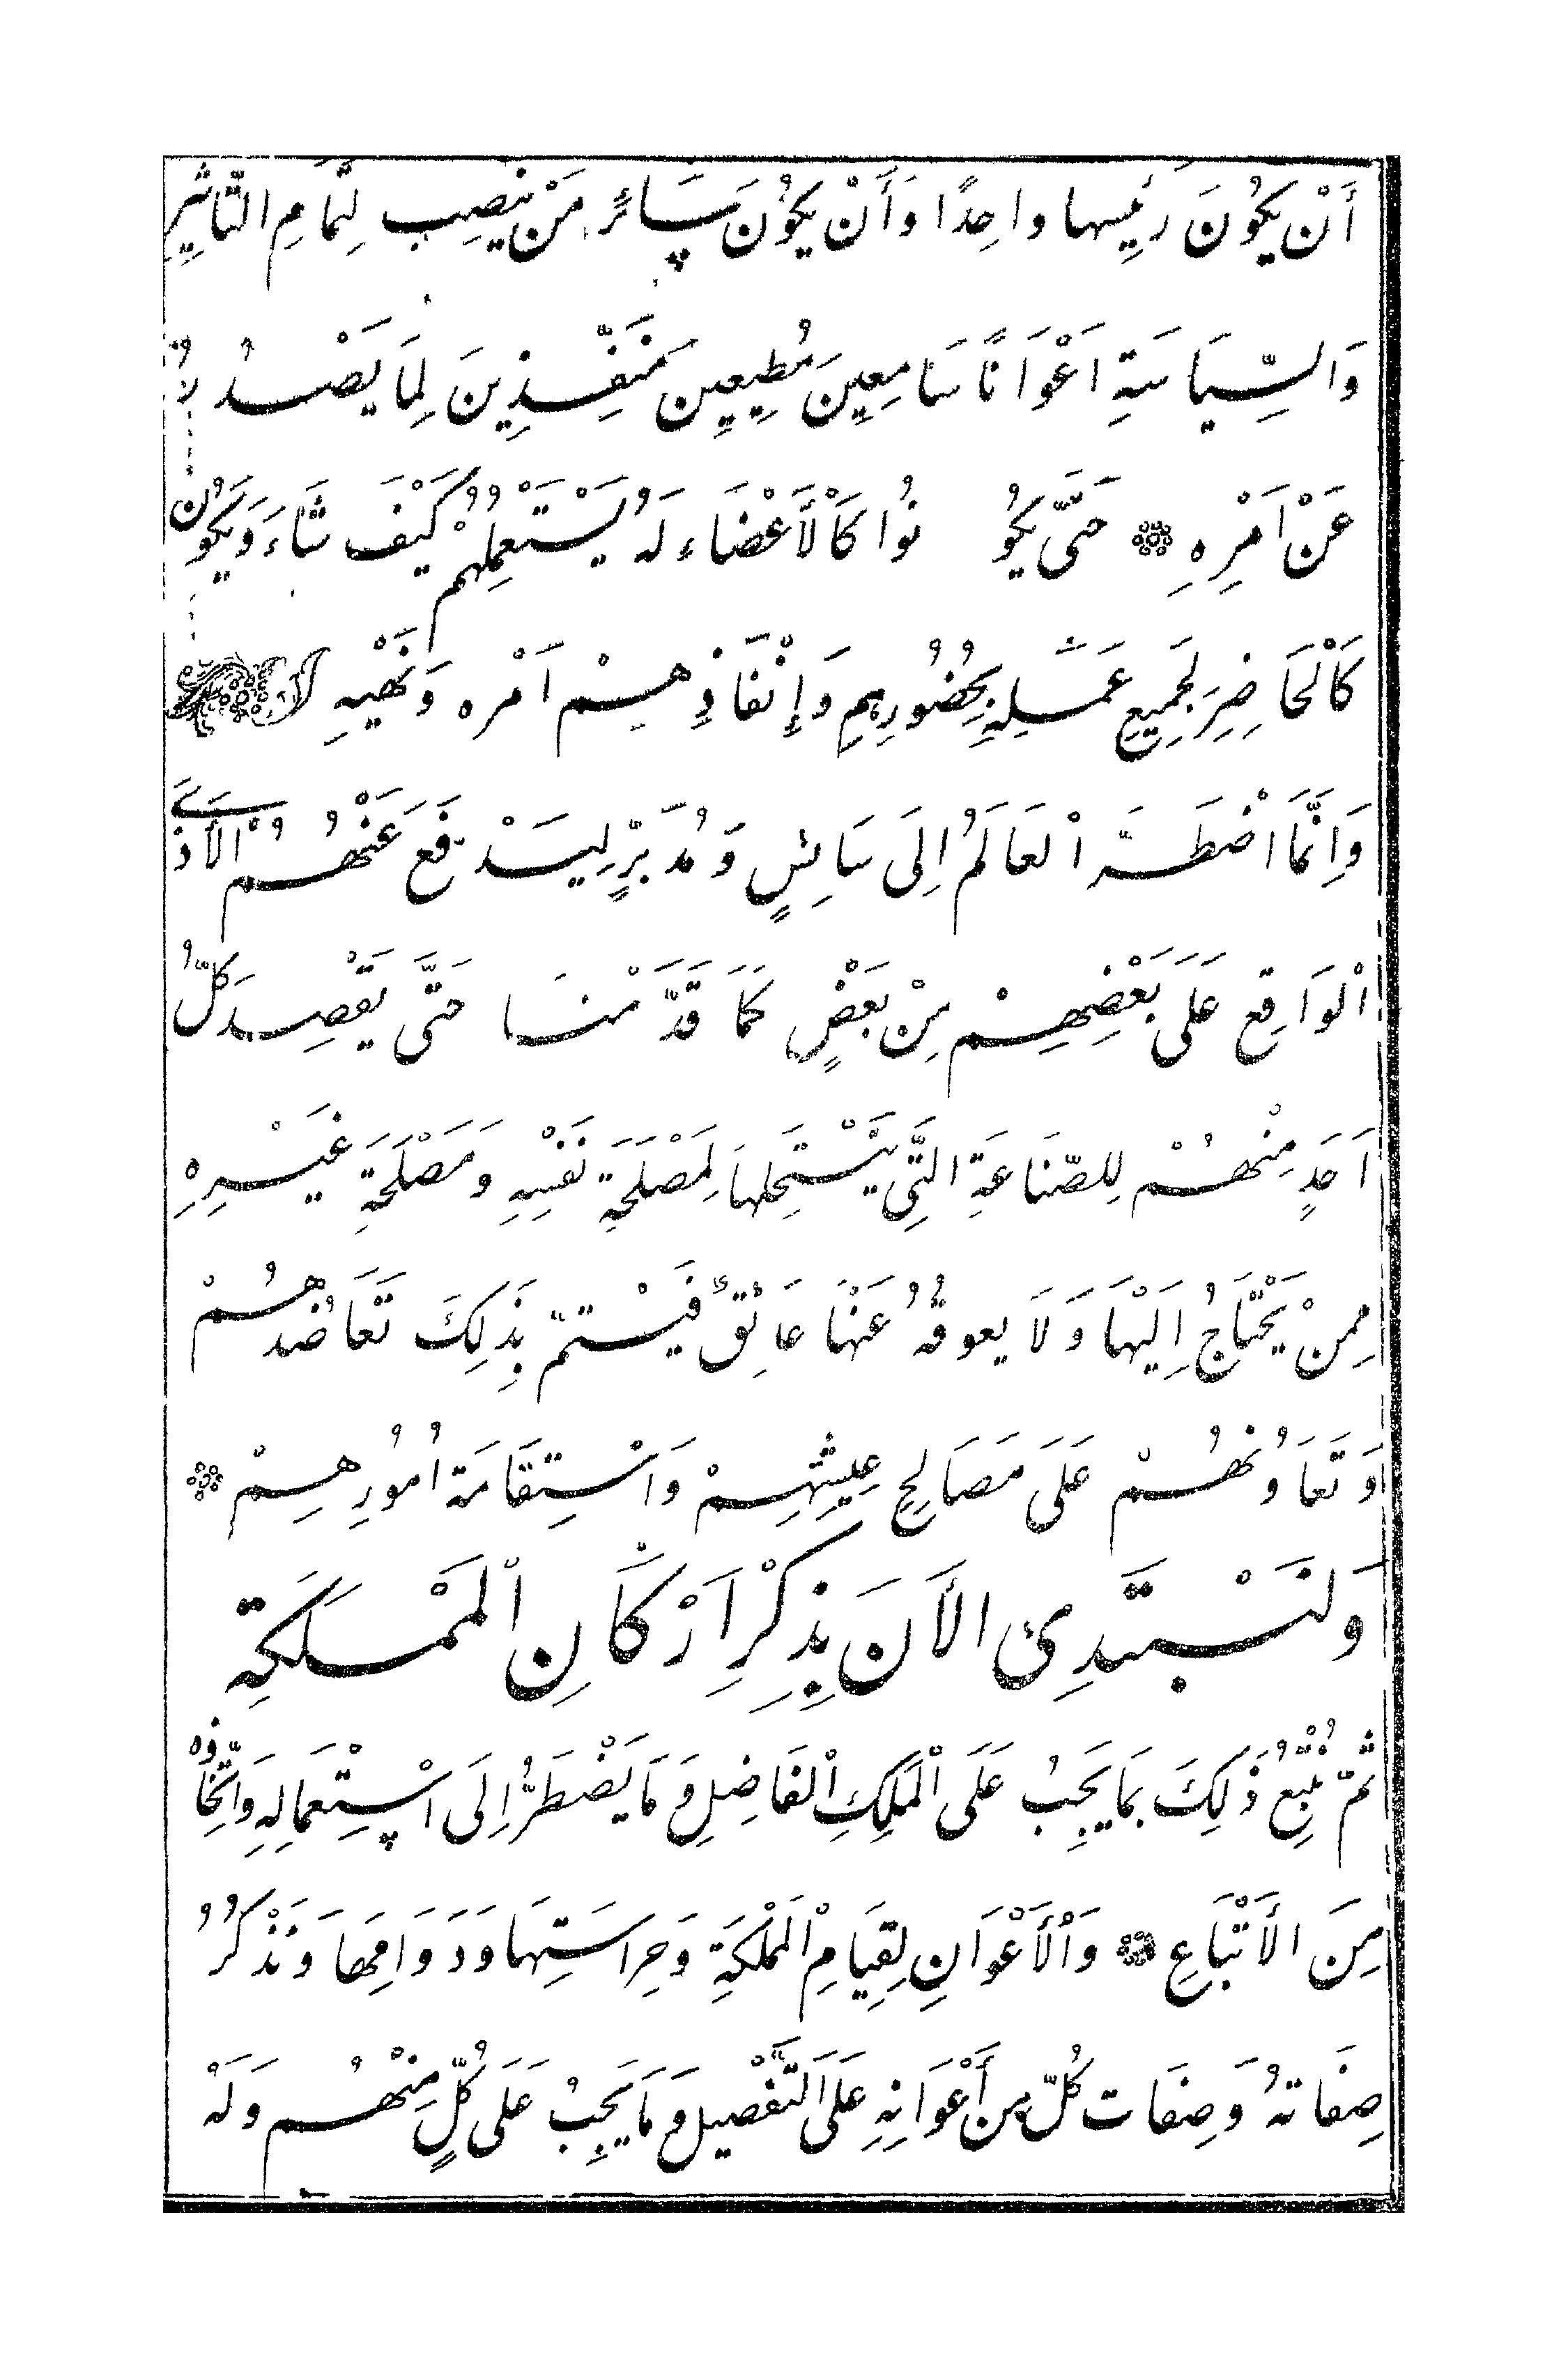 أَنْ يَكُوُنَ رَئِيسها واحِدًا وَأَنْ يَكُوُنَ سَائرُ مَنْ ينصِب لِتَمَامِ التَّاثِيرِ
وَالسِّيَاسَةِ اَعْوَانًا سَامعِينَ مُطِيعِين مَنَفِّذِينَ لِمَا يَصْدُرُ
عَنْ اَمْرِهِ حَتَّى يَكُوُنُوا كَاْلأَعْضَاءِ لَهُ يَسْتَعْمِلُهُمْ كَيْفَ شَاءَ وَيَكُوُن
كَاْلحَاضِرَ لجَمِيعِ عَمَلِهِ بِحُضُورِهِمِ وَإِنْفَاذِهِمْ اَمْره وَنَهْيهِ
وَاِنَّمَا اضْطَرَّ اْلعَالَمُ اِلَى سَائِسٍ وَمُدَبِّرٍ لِيَدْفَعَ عَنْهُمُ اْلأَذَى
اْلوَاقِع عَلَى بَعْضِهِمْ مِنْ بَعْضٍ كَمَا قَدَّمْنَا حَتَّى يَقْصِدَ كُلُّ
اَحَدٍ مِنْهُمْ لِلصّنَاعَةِ الَّتِى يَنْتَحِلهَا لِمَصْلَحَةِ نَفْسِهِ وَمَصْلَحَةِ غَيْرِهِ
مِمنْ يَحْتَاجُ اِلَيْهَا وَلَا يعوقهُ عَنْهَا عَائِقٌ فَيْستمّ بِذَلِكَ تَعَاضُدهُمْ
وَتَعَاوُنهُمْ عَلَى مَصَالِحِ عِيشِهِمْ وَاسْتِقَامَة اُمُورِهِمْ
وَلنَبْتَدِئ الأَنَ بِذِكْرِ اَرْكَانِ اْلمَمْلَكَةِ
ثمّ نُتْبِعُ ذَلِكَ بمَا يَجِبُ عَلَى اْلمَلِكِ اْلفَاضِلِ وَمَا يَضْطَرُّ اِلَى اسْتِعْمَالِهِ وَاتِّخَاذه
مِنَ الأَتْبَاعِ وَاْلأَعْوَانِ لِقِيَامِ اْلمَمْلكَةِ وَحِراسَتِهَا وَدَوَامِهَا وَنَذْكُرُ
صِفَاتهُ وَصِفَات كُلّ مِن أَعْوَانِهِ عَلَى التَّفْصيل وَمَا يَجِبُ عَلَى كُلٍّ مِنْهُم وَلَهُ